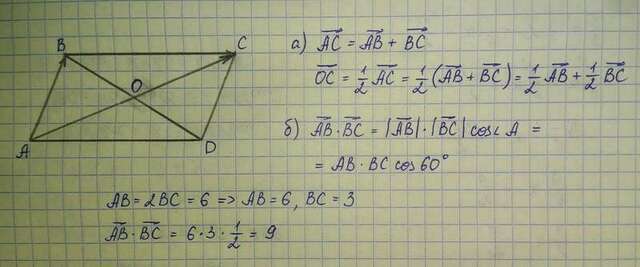 B C
O
A D
а) AC⃗ = AB⃗ + BC⃗
OC⃗ = 1/2 AC⃗ = 1/2 (AB⃗ + BC⃗) = 1/2 AB⃗ + 1/2 BC⃗
б) AB⃗ · BC⃗ = |AB⃗| · |BC⃗| cos∠A =
= AB · BC cos 60°
AB = 2BC = 6 => AB = 6, BC = 3
AB⃗ · BC⃗ = 6 · 3 · 1/2 = 9